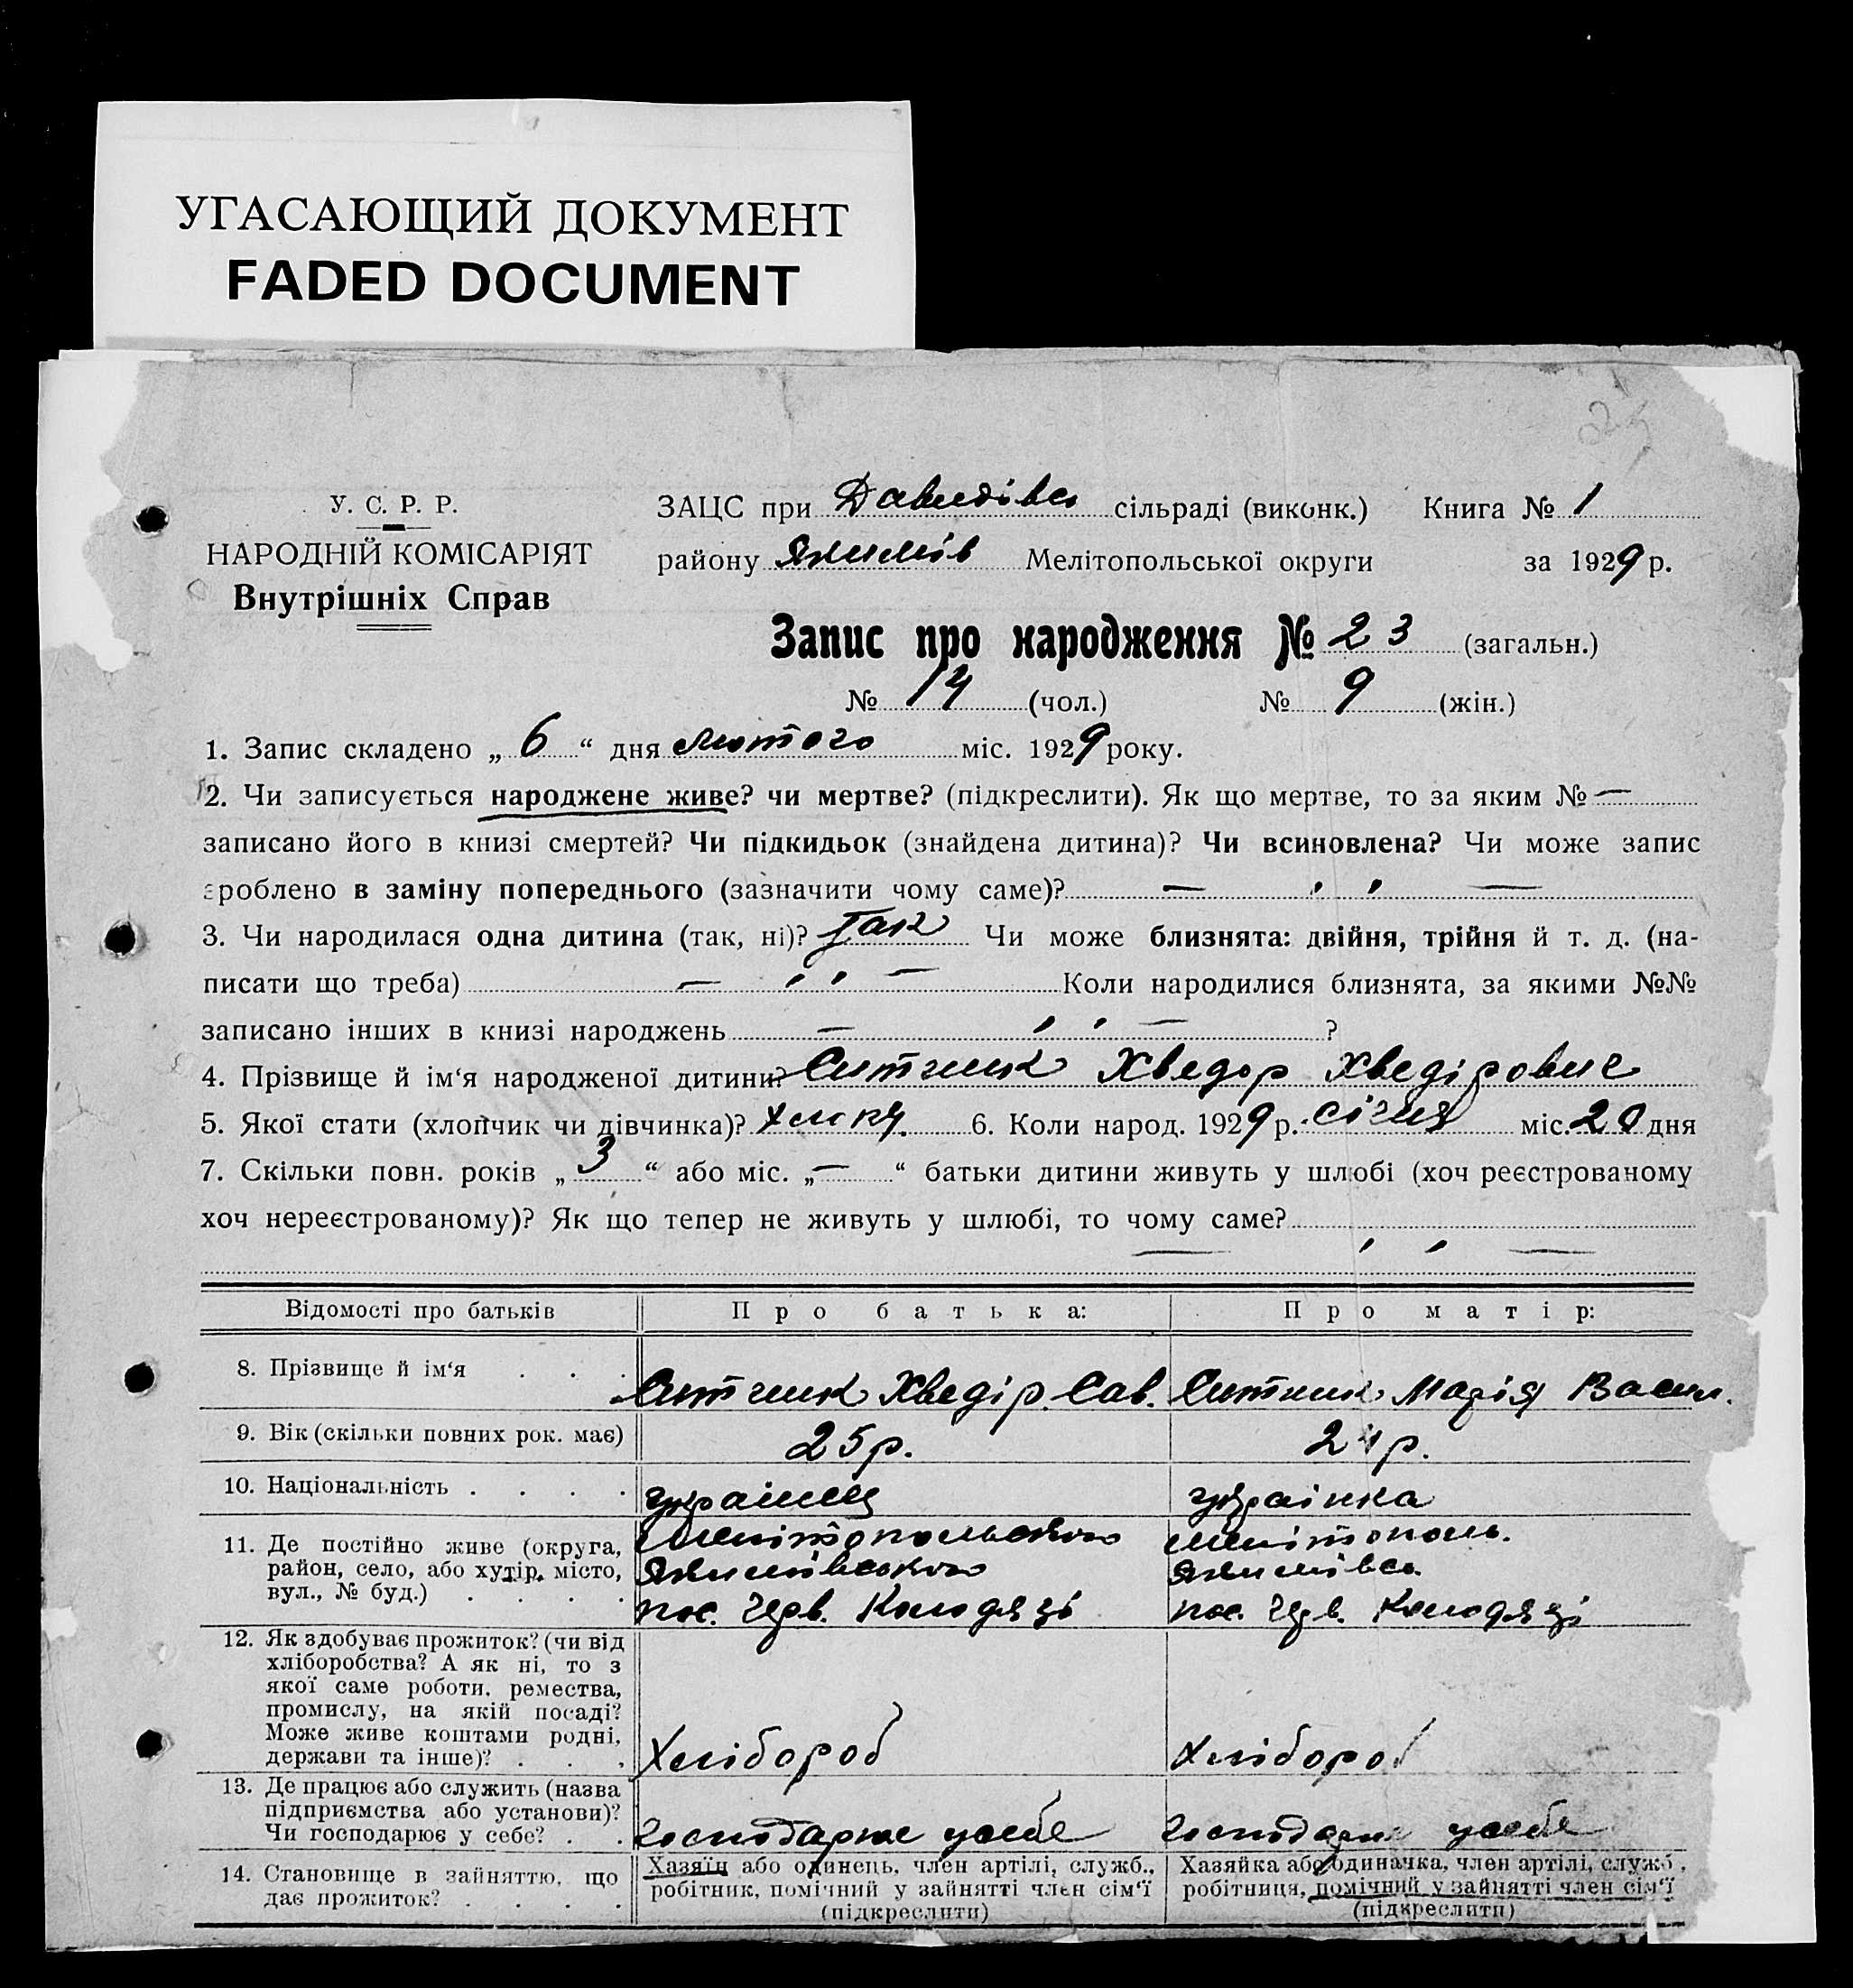 УГАСАЮЩИЙ ДОКУМЕНТ
FADED DOCUMENT
У. С. Р. Р.
НАРОДНІЙ КОМІСАРІЯТ
Внутрішніх Справ
ЗАЦС при Давидівсь сільраді (виконк.) Книга № 1
району Якимів Мелітопольської округи за 1929 р.
Запис про народження № 23 (загальн.)
№ 14 (чол.) № 9 (жін.)
1. Запис складено „ 6 “ дня лютого міс. 1929 року.
2. Чи записується народжене живе? чи мертве? (підкреслити). Як що мертве, то за яким № —
записано його в книзі смертей? Чи підкидьок (знайдена дитина)? Чи всиновлена? Чи може запис
зроблено в заміну попереднього (зазначити чому саме)? — ' ' —
3. Чи народилася одна дитина (так, ні)? так Чи може близнята: двійня, трійня й т. д. (на-
писати що треба) — ' ' — Коли народилися близнята, за якими №№
записано інших в книзі народжень — ' ' — ?
4. Прізвище й ім'я народженої дитини? Ситник Хведор Хведірович
5. Якої стати (хлопчик чи дівчинка)? хлопч. 6. Коли народ. 1929 р. січня міс. 20 дня
7. Скільки повн. років „ 3 “ або міс. „ — “ батьки дитини живуть у шлюбі (хоч реєстрованому
хоч нереєстрованому)? Як що тепер не живуть у шлюбі, то чому саме?
— ' ' —
Відомості про батьків Про батька: Про матір:
8. Прізвище й ім'я . . . Ситник Хведір Сав. Ситник Марія Васил.
9. Вік (скільки повних рок. має) 25 р. 24 р.
10. Національність . . . . українець українка
11. Де постійно живе (округа, Мелітопольською Мелітополь.
район, село, або хутір, місто, Якимівською Якимівсь.
вул., № буд.) . . . . пос. Черв. Колодязі пос. Черв. Колодязі
12. Як здобуває прожиток? (чи від
хліборобства? А як ні, то з
якої саме роботи, ремества,
промислу, на якій посаді?
Може живе коштами родні,
держави та інше)? . . . Хлібороб Хлібороб
13. Де працює або служить (назва
підприємства або установи)?
Чи господарює у себе? . . господарює у себе господарює у себе
14. Становище в зайняттю, що Хазяїн або одинець, член артілі, служб., Хазяйка або одиначка, член артілі, служб.,
дає прожиток? . . . . робітник, помічний у зайнятті член сім'ї робітниця, помічний у зайнятті член сім'ї
(підкреслити) (підкреслити)